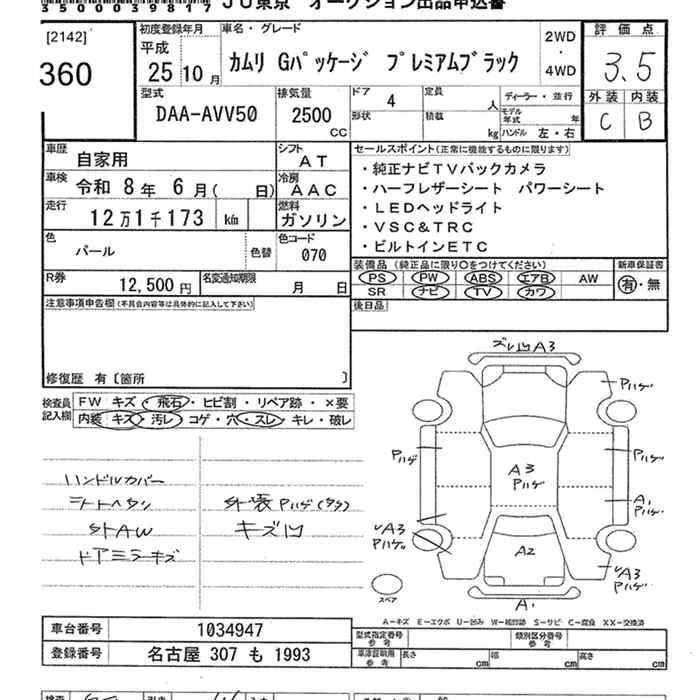 35000039817 JU東京 オークション出品申込書
[2142]
360
初度登録年月
平成
25年10月
車名・グレード
カムリ Gパッケージ プレミアムブラック
2WD
・
4WD
評価点
3.5
外装 内装
C B
型式
DAA-AVV50
排気量
2500
CC
ドア 4
定員 人
形状
積載 kg
ディーラー・並行
モデル年式 年
ハンドル 左・右
車歴
自家用
シフト
AT
車検
令和 8年 6月( 日)
冷房
AAC
走行
12万1千173 km
燃料
ガソリン
色
パール
色替
色コード
070
R券
12,500円
名変通知期限
月 日
セールスポイント(正常に機能するものに限ります)
・純正ナビTVバックカメラ
・ハーフレザーシート パワーシート
・LEDヘッドライト
・VSC&TRC
・ビルトインETC
装備品 (純正品に限り○をつけてください)
PS PW ABS エアB AW
SR ナビ TV カワ
新車保証書
有・無
後日品
注意事項申告欄(不具合内容等は具体的に記入して下さい)
修復歴 有〔箇所 〕
検査員記入欄
FW キズ・飛石・ヒビ割・リペア跡・×要
内装 キズ・汚レ・コゲ・穴・スレ・キレ・破レ
ハンドルカバー
シートヘタリ
外AW
ドアミラーキズ
外装Pハゲ(タタ)
キズ凹
ズレ凹A3
Pハゲ
Pハゲ
Pハゲ
A3
Pハゲ
A1
Pハゲ
A3
Pハゲ
A2
A3
Pハゲ
A1
スペア
A－キズ E－エクボ U－凹み W－補修跡 S－サビ C－腐食 XX－交換済
車台番号
1034947
登録番号
名古屋 307 も 1993
型式指定番号
参考
類別区分番号
参考
車庫証明用
参考
長さ cm
幅 cm
高さ cm